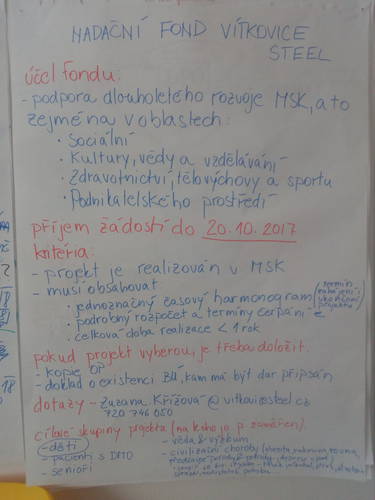 NADAČNÍ FOND VÍTKOVICE
STEEL
účel fondu:
- podpora dlouholetého rozvoje MSK, a to
zejména v oblastech:
• Sociální
• Kultury, vědy a vzdělávání
• Zdravotnictví, tělovýchovy a sportu
• Podnikatelského prostředí
příjem žádostí do 20.10.2017
kritéria:
- projekt je realizován v MSK
- musí obsahovat
• jednoznačný časový harmonogram (termín zahájení, ukončení projektu)
• podrobný rozpočet a termíny čerpání
• celková doba realizace < 1 rok
pokud projekt vyberou, je třeba doložit:
- kopie OP
- doklad o existenci BÚ, kam má být dar připsán
dotazy - Zuzana.Křížová@vitkovicesteel.cz
720 746 050
cílové skupiny projektu (na koho je p. zaměřen)
- děti
- pacienti s DMO
- senioři
- věda & výzkum
- civilizační choroby